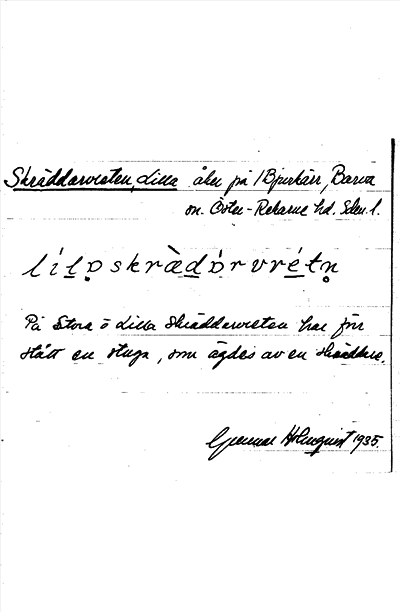 Skräddarvreten, Lilla åker på /Bjurkärr, Barva
sn. Öster-Rekarne hd. Sdm. l.
lílɒskrædórvrétn̥
På Stora o Lilla Skräddarvreten har förr
stått en stuga, som ägdes av en skräddare.
Gunnar Holmquist 1935.